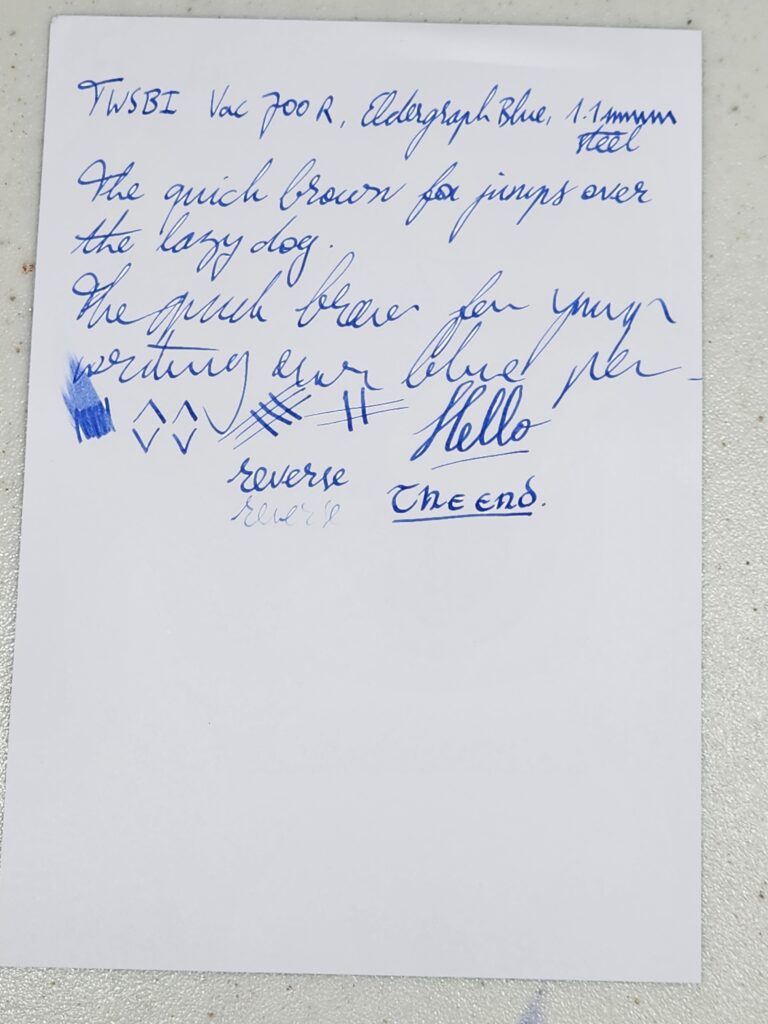 TWSBI Vac 700R, Eldergraph Blue, 1.1mmmm
steel
The quick brown fox jumps over
the lazy dog.
The quick brown
writing blue pen
Hello
reverse
The end.
reverse